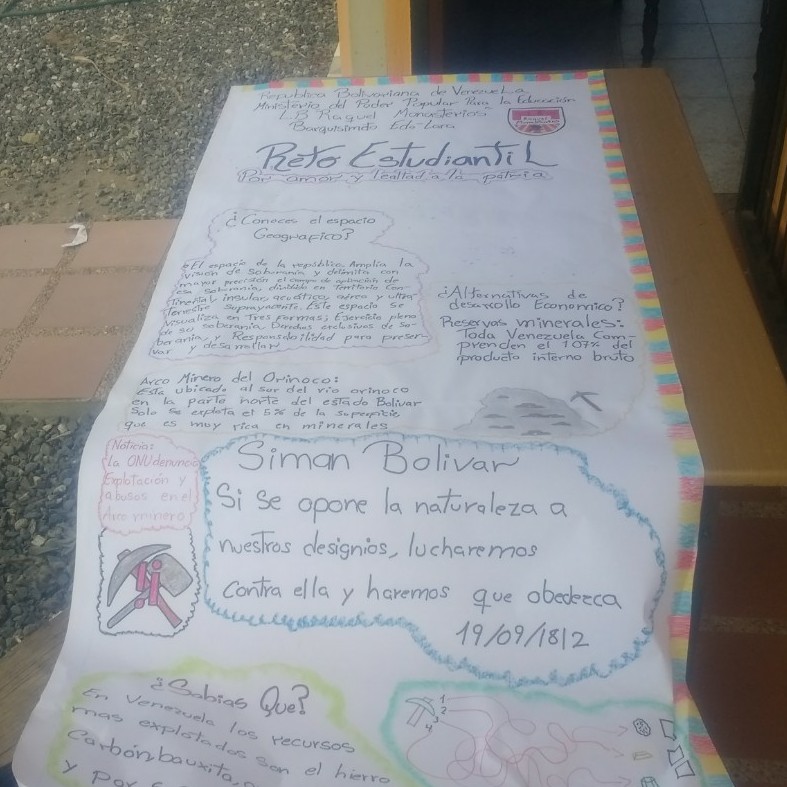 Republica Bolivariana de Venezuela
Ministerio del Poder Popular Para la Educación
L.B Raquel Monasterios
Barquisimeto Edo-Lara
Reto Estudiantil
Por amor y lealtad a la patria
¿Conoces el espacio
Geografico?
El espacio de la república Amplia la
visión de Soberanía y delimita con
mayor precisión el campo de aplicación de
esa Soberanía, dividido en Territorio Con-
tinental, insular, acuático, aéreo y ultra
terrestre suprayacente. Este espacio se
visualiza en Tres formas; Ejercicio pleno
de su soberanía, Derechos exclusivos de So-
beranía, y Responsbilidad para preser-
var y desarrollar
¿Alternativas de
desarollo Economico?
Reservas minerales:
Toda Venezuela Com-
prenden el 107% del
producto interno bruto
Arco Minero del Orinoco:
Esta ubicado al sur del río orinoco
en la parte norte del estado Bolivar
Solo se explota el 5% de la superficie
que es muy rica en minerales
Noticia:
La ONU denuncio
Explotación y
abusos en el
Arco minero
Siman Bolivar
Si se opone la naturaleza a
nuestros designios, lucharemos
contra ella y haremos que obedezca
19/09/1812
¿Sabias Que?
En Venezuela los recursos
mas explotados son el hierro
Carbón, bauxita,
y por
1
2
3
4